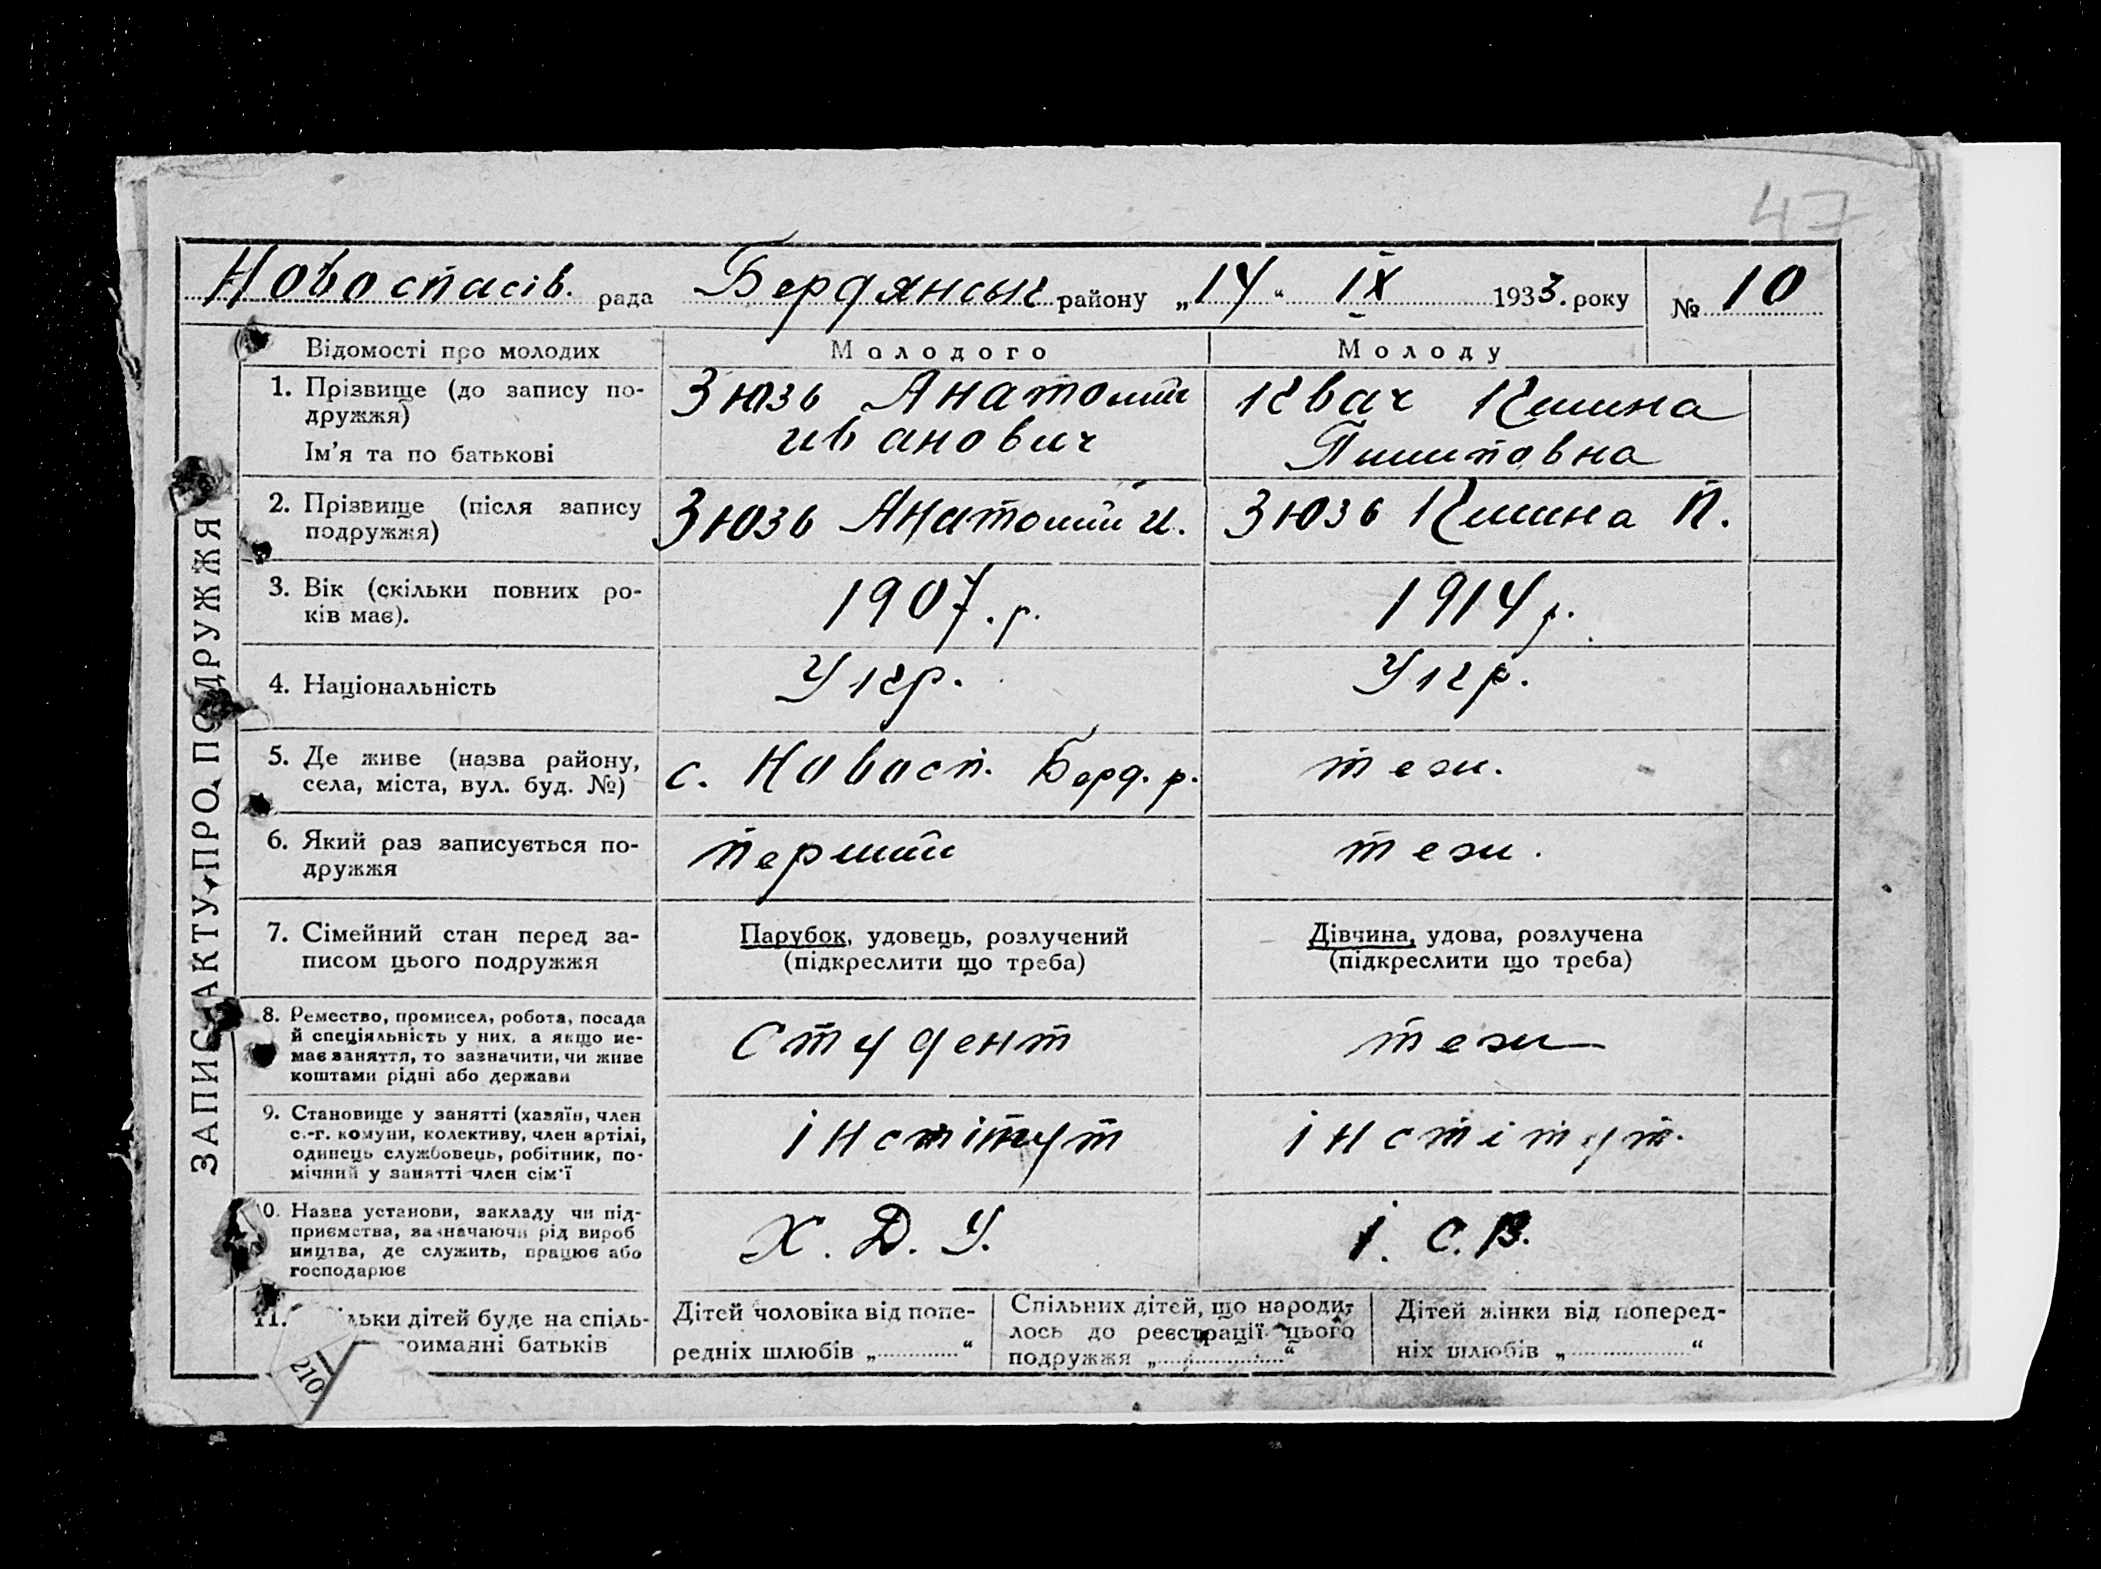 47
Новоспасів. рада Бердянськ району „14“ IX 1933. року № 10
ЗАПИС АКТУ ПРО ПОДРУЖЖЯ
Відомості про молодих Молодого Молоду
1. Прізвище (до запису по-
дружжя)
Ім'я та по батькові
Зюзь Анатолий
иванович
Квач
2. Прізвище (після запису
подружжя)
Зюзь Анатолий И.
Зюзь П.
3. Вік (скільки повних ро-
ків має).
1907. р.
1914 р.
4. Національність
Укр.
Укр.
5. Де живе (назва району,
села, міста, вул. буд. №)
с. Новосп. Берд. р.
теж.
6. Який раз записується по-
дружжя
перший
теж.
7. Сімейний стан перед за-
писом цього подружжя
Парубок, удовець, розлучений
(підкреслити що треба)
Дівчина, удова, розлучена
(підкреслити що треба)
8. Ремество, промисел, робота, посада
й спеціяльність у них, а якщо не-
має заняття, то зазначити, чи живе
коштами рідні або держави
Студент
теж
9. Становище у занятті (хазяїн, член
с.-г. комуни, колективу, член артілі,
одинець службовець, робітник, по-
мічний у занятті член сім'ї
інстітут
інстітут.
0. Назва установи, закладу чи під-
приємства, зазначаючи рід вироб
ництва, де служить, працює або
господарює
Х. Д. У.
І. С. В.
11. льки дітей буде на спіль-
риманні батьків
Дітей чоловіка від попе-
редніх шлюбів „ “
Спільних дітей, що народи-
лось до реєстрації цього
подружжя „ “
Дітей жінки від поперед-
ніх шлюбів „ “
210